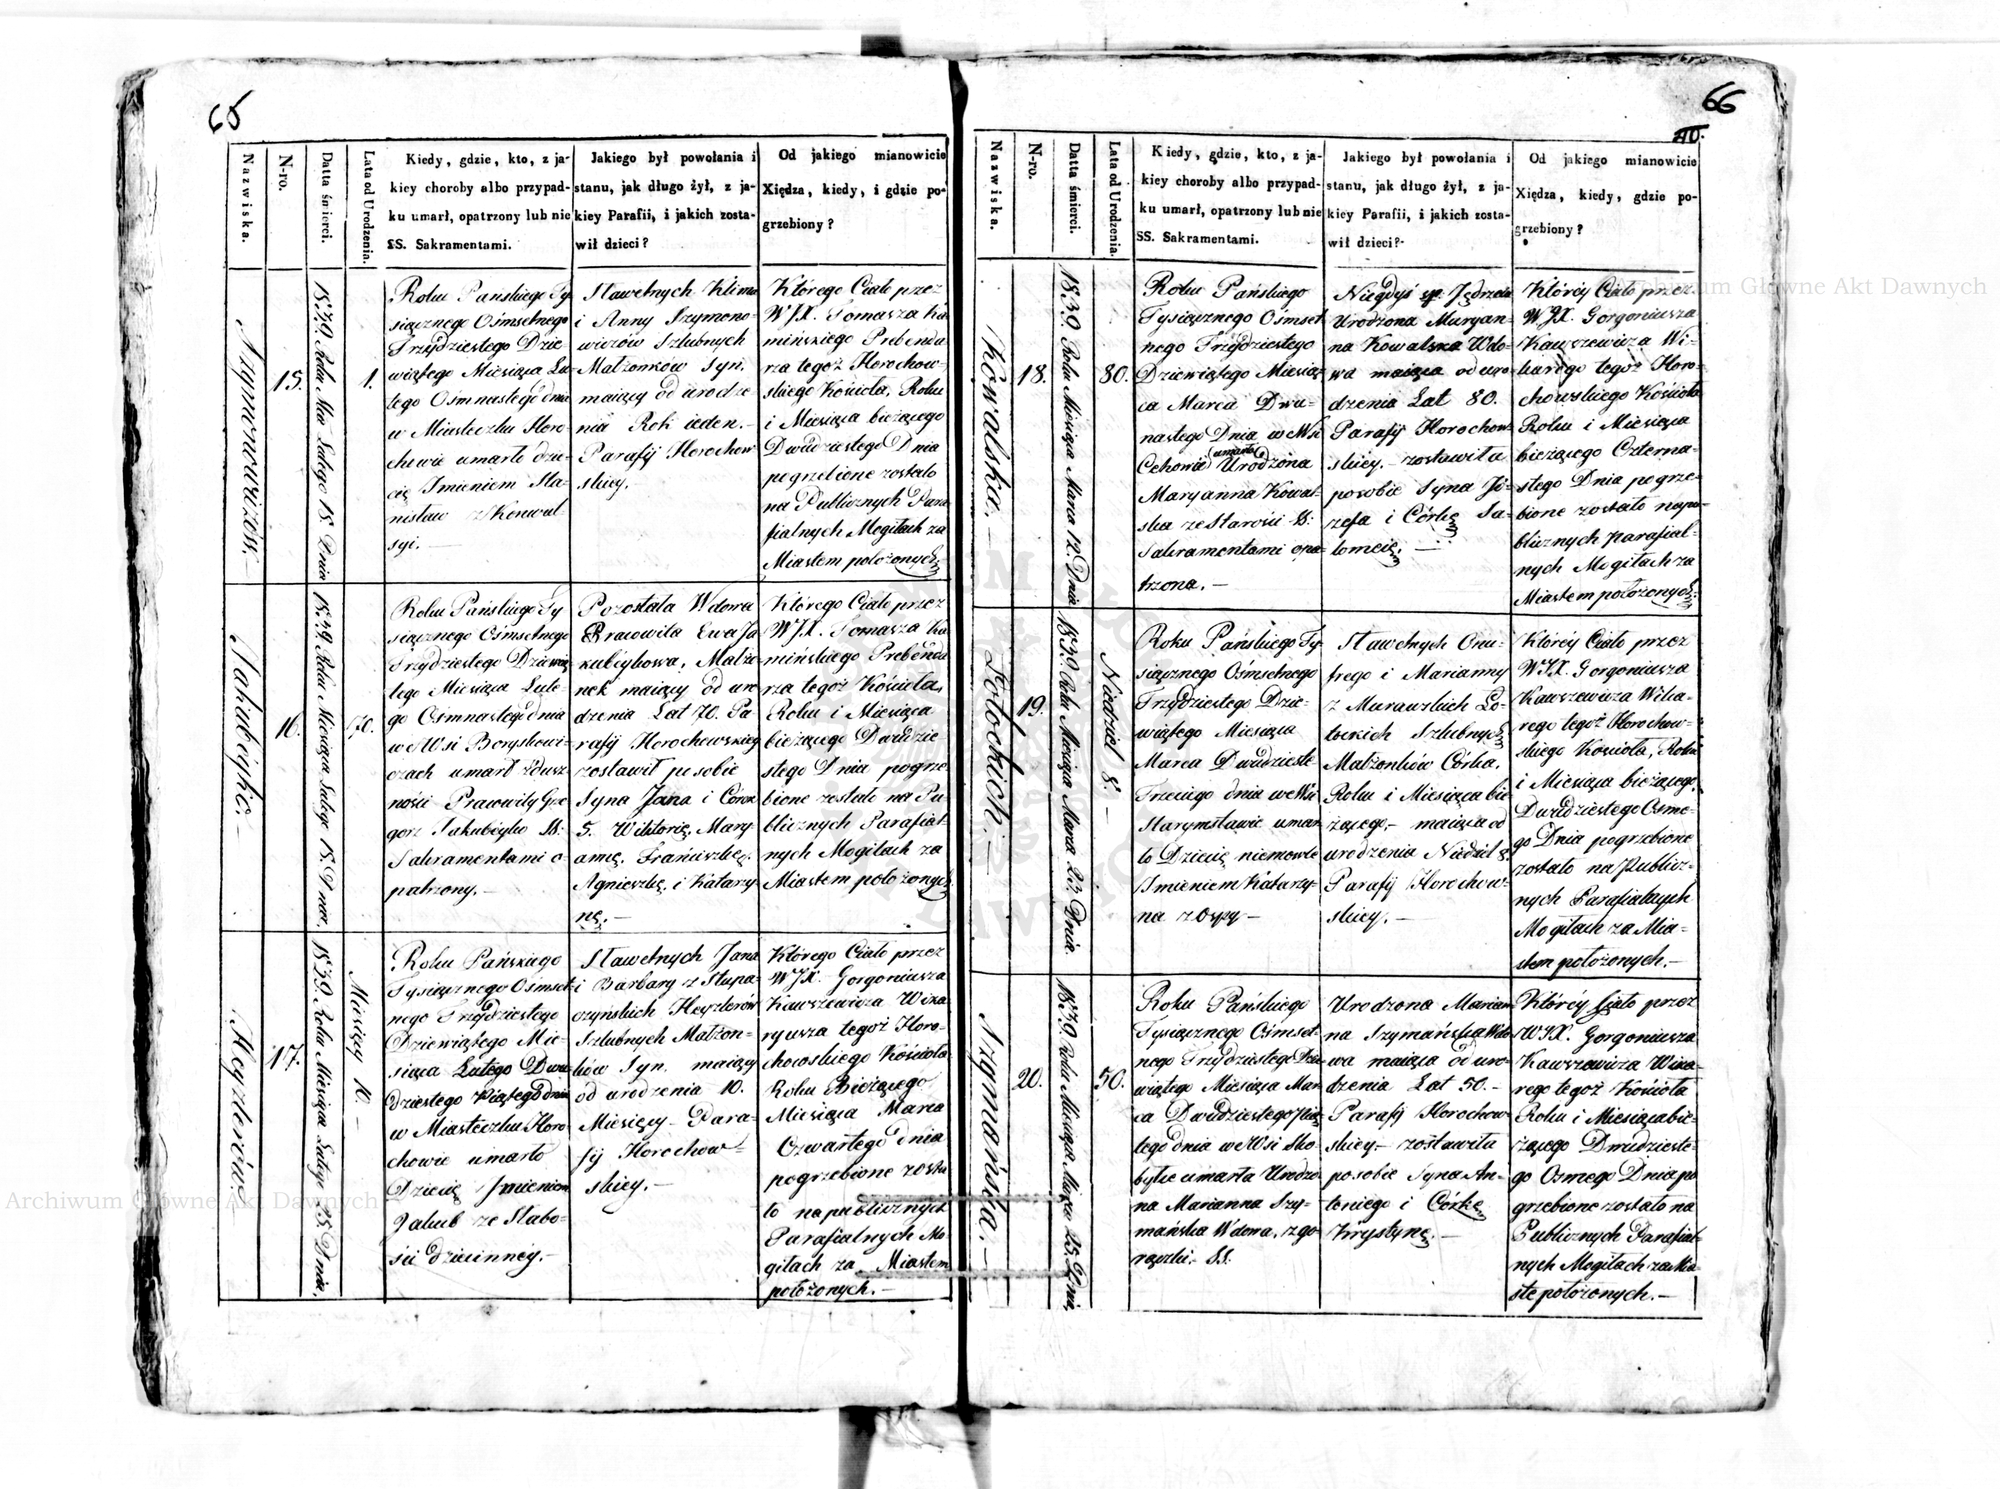 65
Nazwiska.
N-ro.
Datta śmierci.
Lata od Urodzenia.
Kiedy, gdzie, kto, z ja-
kiey choroby albo przypad-
ku umarł, opatrzony lub nie
SS. Sakramentami.
Jakiego był powołania i
stanu, jak długo żył, z ja-
kiey Parafii, i jakich zosta-
wił dzieci?
Od jakiego mianowicie
Xiędza, kiedy, i gdzie po-
grzebiony?
Szymonowiczów.
15.
1839. Roku Mca Lutego 18. Dnia
1.
Roku Pańskiego Ty
siącznego Ośmsetnego
Trzydziestego Dzie
wiątego Miesiąca Lu
tego Ośmnastego dnia
w Miasteczku Horo-
chowie umarło dzie-
cię Imieniem Sta-
nisław z Konwul-
syi.
Sławetnych Klima
i Anny Szymono-
wiczów Szlubnych
Małżonków Syn.
maiący od urodze
nia Rok ieden.
Parafij Horochow
skiey.
Którego Ciało przez
W.JX. Tomasza Ka
mińskiego Prebenda
rza tegoż Horochow-
skiego Kościoła, Roku
i Miesiąca bieżącego
Dwudziestego Dnia
pogrzebione zostało
na Publicznych Para
fialnych Mogiłach za
Miastem położonych
Jakubéyko.
16.
1839. Roku Miesiąca Lutego 18. Dnia.
70.
Roku Pańskiego Ty
siącznego Ośmsetnego
Trzydziestego Dziewią
tego Miesiąca Lute-
go Ośmnastego dnia
we Wsi Boryskowi-
czach umarł z dusz
ności Pracowity Grze
gorz Jakubéyko SS:
Sakramentami o-
patrzony.
Pozostała Wdowa
Pracowita Ewa Ja
kubéykowa, Małżo-
nek maiący od uro
dzenia Lat 70. Pa
rafij Horochowskiey
zostawił po sobie
Syna Jana i Córek
5. Wiktorię, Mary
annę, Franciszkę,
Agnieszkę, i Katarzy
nę.
Którego Ciało przez
W.JX. Tomasza Ka
mińskiego Prebenda
rza tegoż Kościoła,
Roku i Miesiąca
bieżącego Dwudzie-
stego Dnia pogrze
bione zostało na Pu-
blicznych Parafial-
nych Mogiłach za
Miastem położonych
Heyzlerów.
17.
1839 Roku Miesiąca Lutego 25. Dnia.
Miesięcy 10.
Roku Pańskiego
Tysiącznego Ośmset-
nego Trzydziestego
Dziewiątego Mie-
siąca Lutego Dwu
dziestego Piątego dnia
w Miasteczku Horo
chowie umarło
Dziecię Imieniem
Jakub ze Słabo-
ści dziecinnéy.
Sławetnych Jana
i Barbary z Słupa-
czyńskich Heyzlerów
Szlubnych Małżon-
ków Syn. maiący
od urodzenia 10.
Miesięcy Para-
fij Horochow-
skiey.
Którego Ciało przez
W.JX. Gorgoniusza
Kawszewicza Wika-
ryusza tegoż Horo-
chowskiego Kościoła
Roku Bieżącego
Miesiąca Marca
Czwartego dnia
pogrzebione zosta
ło na publicznych
Parafialnych Mo-
giłach za Miastem
położonych.
66
Nazwiska.
N-ro.
Datta śmierci.
Lata od Urodzenia.
Kiedy, gdzie, kto, z ja-
kiey choroby albo przypad-
ku umarł, opatrzony lub nie
SS. Sakramentami.
Jakiego był powołania i
stanu, jak długo żył, z ja-
kiey Parafii, i jakich zosta-
wił dzieci?
Od jakiego mianowicie
Xiędza, kiedy, gdzie po-
grzebiony?
Kowalska.
18.
1839. Roku Miesiąca Marca 12. Dnia
80.
Roku Pańskiego
Tysiącznego Ośmset
nego Trzydziestego
Dziewiątego Miesią
ca Marca Dwu-
nastego Dnia we Wsi
Cehowie umarła Urodzona
Maryanna Kowal-
ska ze Starości SS:
Sakramentami opa-
trzona.
Niegdyś sp. Jędrzeia
Urodzona Maryan-
na Kowalska Wdo-
wa maiąca od uro
dzenia Lat 80.
Parafij Horochow
skiey. zostawiła
po sobie Syna Jó-
zefa i Córkę Sa-
lomeię.
Któréy Ciało przez
W.JX. Gorgoniusza
Kawszewicza Wi-
karego tegoż Horo-
chowskiego Kościoła
Roku i Miesiąca
bieżącego Czterna-
stego Dnia pogrze-
bione zostało na pu-
blicznych parafial-
nych Mogiłach za
Miastem położonych.
Łotockich.
19.
1839. Roku Miesiąca Marca 23. Dnia.
Niedziel 8.
Roku Pańskiego Ty
siącznego Ośmsetnego
Trzydziestego Dzie-
wiątego Miesiąca
Marca Dwudzieste
Trzeciego dnia we Wsi
Starymstawie umar
ło Dziecię niemowle
Imieniem Katarzy-
na z Ospy
Sławetnych Onu-
frego i Marianny
z Murawskich Ło-
tockich Szlubnych
Małżonków Córka.
Roku i Miesiąca bie
żącego, maiąca od
urodzenia Niedziel 8.
Parafij Horochow-
skiey.
Któréy Ciało przez
W.JX. Gorgoniusza
Kawszewicza Wika-
rego tegoż Horochow-
skiego Kościoła, Roku
i Miesiąca bieżącego,
Dwudziestego Osme-
go Dnia pogrzebione
zostało na Publicz-
nych Parafialnych
Mogiłach za Mia-
stem położonych.
Szymańska.
20.
1839. Roku Miesiąca Marca 25. Dnia
50.
Roku Pańskiego
Tysiącznego Ośmset-
nego Trzydziestego Dzie
wiątego Miesiąca Mar
ca Dwudziestego Pią
tego dnia we Wsi Sko-
byłce umarła Urodzo
na Marianna Szy-
mańska Wdowa, z go-
rączki. SS.
Urodzona Marian
na Szymańska Wdo
wa maiąca od uro-
dzenia Lat 50.
Parafij Horochow
skiey. zostawiła
po sobie Syna An-
toniego i Córkę
Krystynę.
Któréy Ciało przez
W.JX. Gorgoniusza
Kawszewicza Wika-
rego tegoż Kościoła
Roku i Miesiąca bie-
żącego Dwudzieste-
go Osmego Dnia po
grzebione zostało na
Publicznych Parafial-
nych Mogiłach za Mia-
ste położonych.
Archiwum Główne Akt Dawnych
Archiwum Główne Akt Dawnych